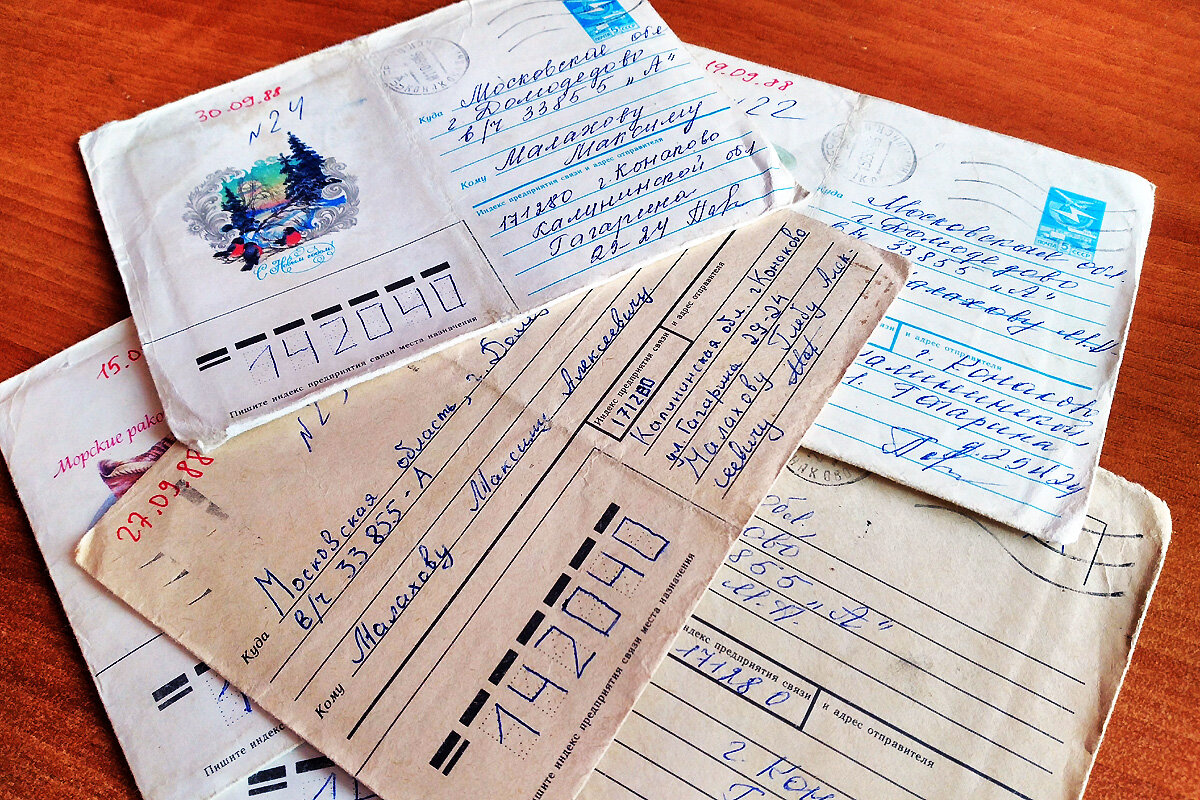 30.09.88
N 24
С Новым годом!
ПОЧТА 5 СССР
Куда
Московская обл
г Домодедово
в/ч 33855 „А"
Кому
Малахову
Максиму
Индекс предприятия связи и адрес отправителя
171280 г. Конаково
Калининской обл
Гагарина
29-24
142040
Пишите индекс предприятия связи места назначения
19.09.88
22
ПОЧТА 5 СССР
Куда
Московская обл.
г Домодедово
в/ч 33855 „А"
Малахову М.А.
и адрес отправителя
г. Конаково
Калининской
Гагарина
д. 29 к 24
15.0
Морские рако
Пишите индекс
27.09.88
N 2
Куда
Московская область, г. Домо
в/ч 33855-А
Кому
Малахову Максиму Алексеевичу
Индекс предприятия связи и адрес отправителя
171280
Калининская обл. г Конаково
ул. Гагарина 29-24
Малахову Глебу Алек
сеевичу
142040
Пишите индекс предприятия связи места назначения
обл.
ово
855 „А"
М.А.
Индекс предприятия связи
и адрес отправителя
171280
г. Кон